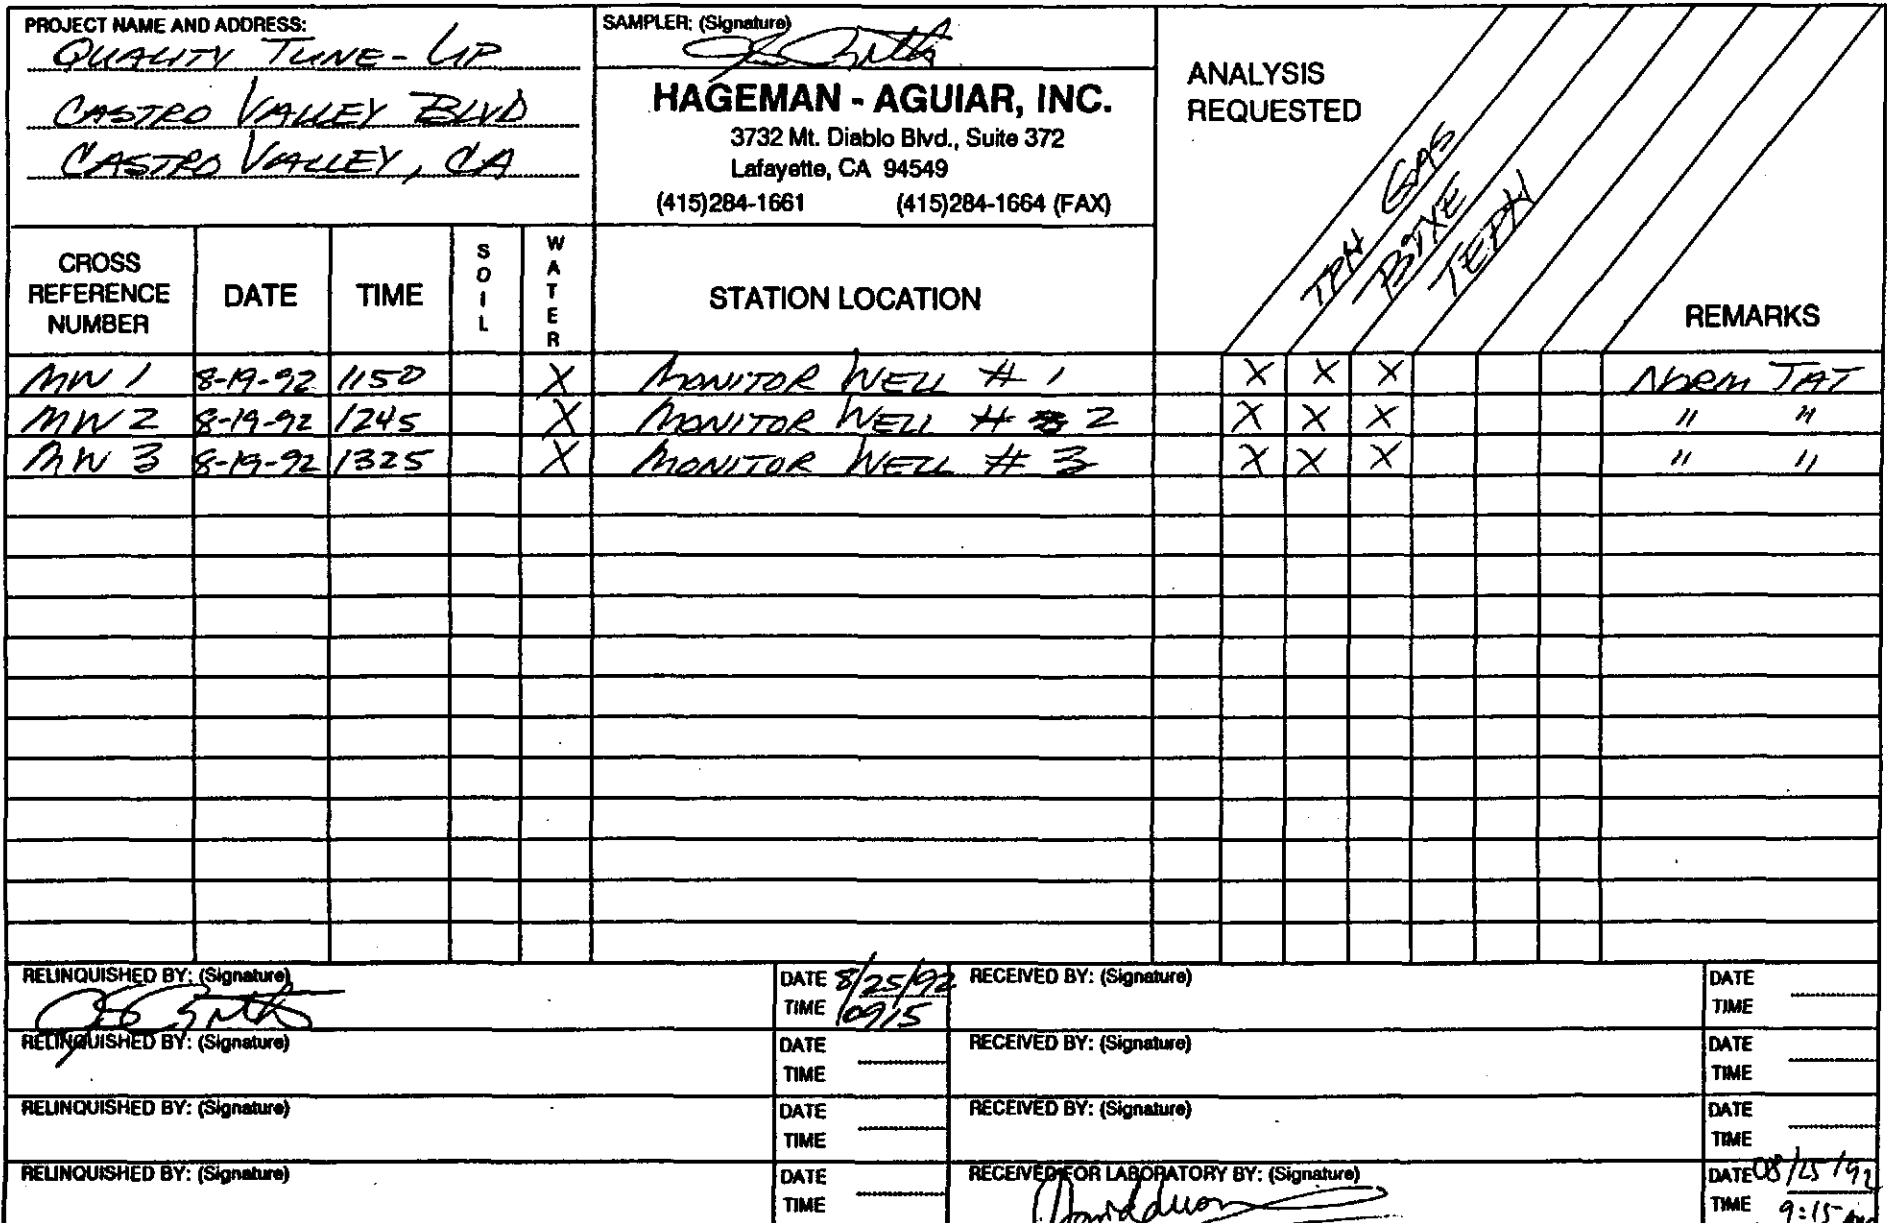 PROJECT NAME AND ADDRESS:
QUALITY TUNE-UP
CASTRO VALLEY BLVD
CASTRO VALLEY, CA
SAMPLER: (Signature)
HAGEMAN - AGUIAR, INC.
3732 Mt. Diablo Blvd., Suite 372
Lafayette, CA 94549
(415)284-1661 (415)284-1664 (FAX)
ANALYSIS
REQUESTED
TPH GAS
BTXE
TEPH
CROSS
REFERENCE
NUMBER
DATE
TIME
SOIL
WATER
STATION LOCATION
REMARKS
MW 1 8-19-92 1150 X MONITOR WELL # 1 X X X NORM TAT
MW 2 8-19-92 1245 X MONITOR WELL # 2 X X X " "
MW 3 8-19-92 1325 X MONITOR WELL # 3 X X X " "
RELINQUISHED BY: (Signature) DATE 8/25/92 RECEIVED BY: (Signature) DATE
TIME 0915 TIME
RELINQUISHED BY: (Signature) DATE RECEIVED BY: (Signature) DATE
TIME TIME
RELINQUISHED BY: (Signature) DATE RECEIVED BY: (Signature) DATE
TIME TIME
RELINQUISHED BY: (Signature) DATE RECEIVED FOR LABORATORY BY: (Signature) DATE 08/25/92
TIME TIME 9:15